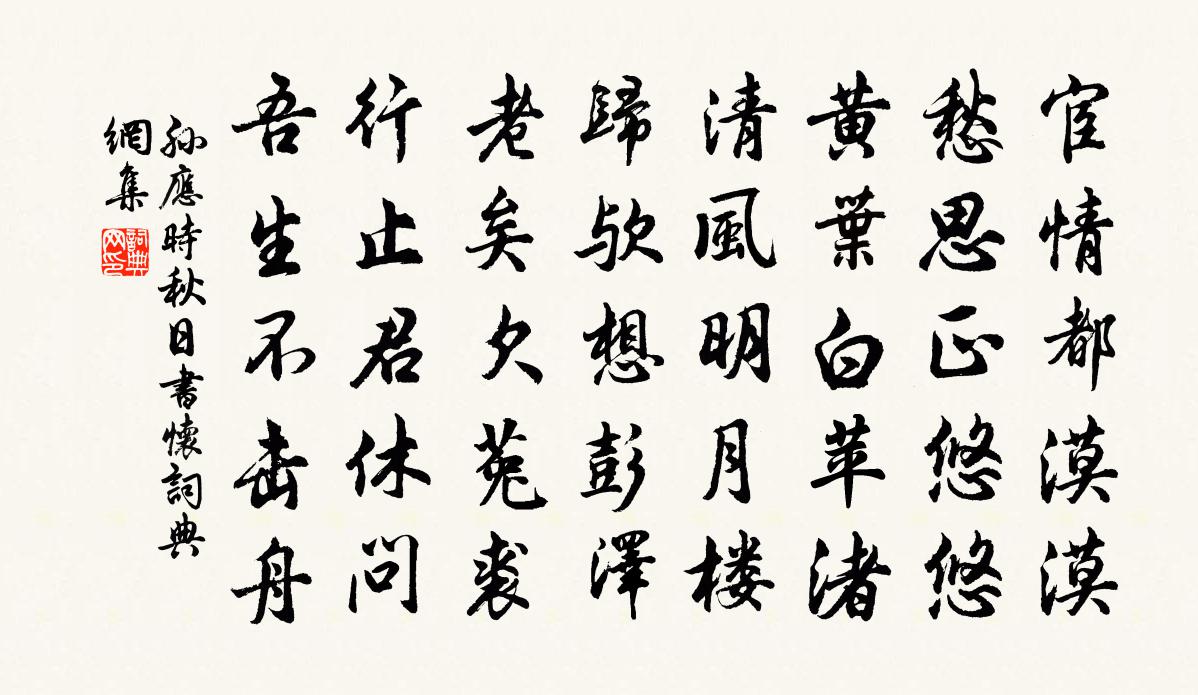 宦情都漠漠
愁思正悠悠
黄葉白苹渚
清風明月楼
歸欤想彭澤
老矣欠菟裘
行止君休問
吾生不击舟
孙應時秋日書懷詞典
網集
詞典
网印